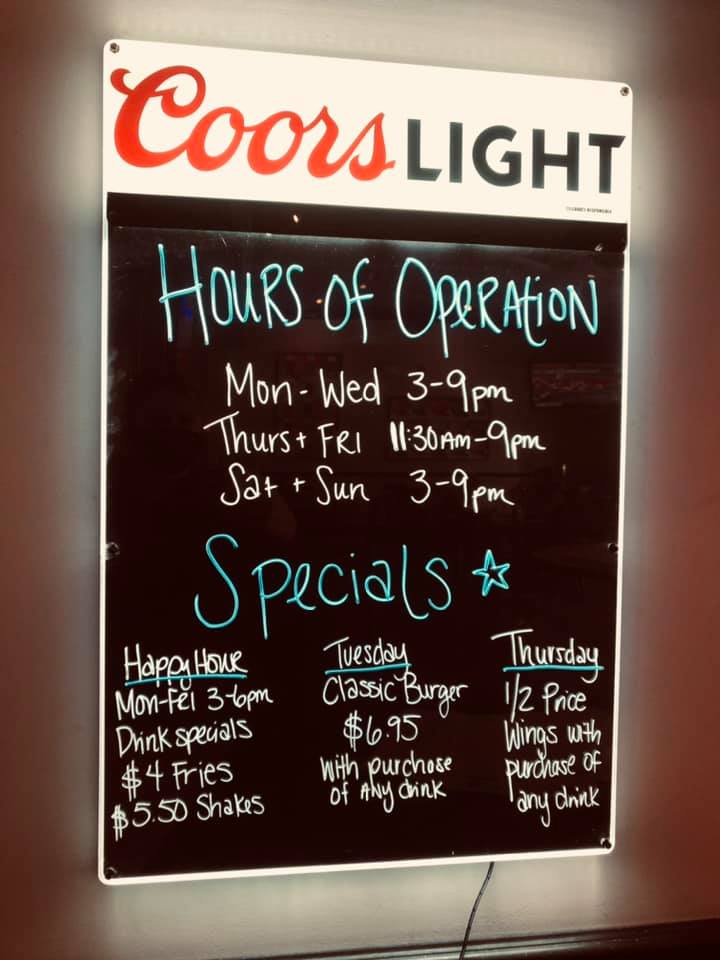 Coors LIGHT
HOURS of OPERATION
Mon - Wed 3-9pm
Thurs + FRI 11:30AM-9pm
Sat + Sun 3-9pm
Specials
Happy Hour
Mon-Fri 3-6pm
Drink specials
$4 Fries
$5.50 Shakes
Tuesday
Classic Burger
$6.95
With purchase
of ANy drink
Thursday
1/2 Price
Wings with
purchase of
any drink